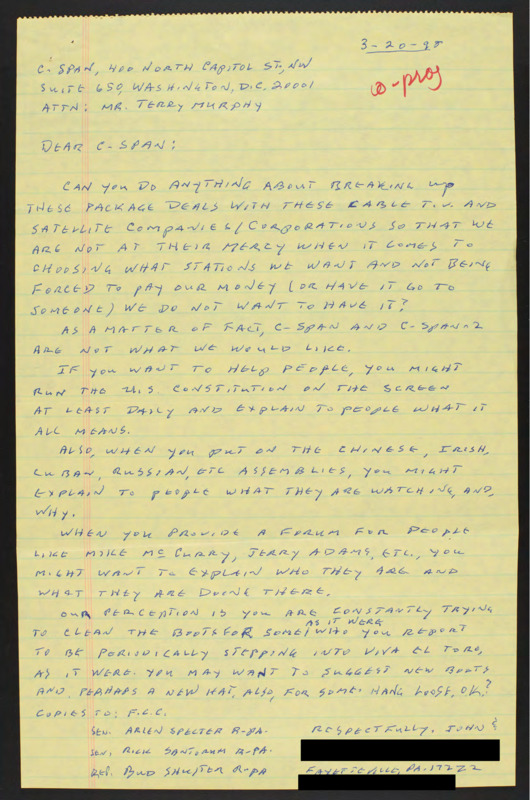 3-20-98
C-SPAN, 400 NORTH CAPITOL ST., NW
SUITE 650, WASHINGTON, D.C. 20001
ATTN: MR. TERRY MURPHY
DEAR C-SPAN:
CAN YOU DO ANYTHING ABOUT BREAKING UP
THESE PACKAGE DEALS WITH THESE CABLE T.V. AND
SATELLITE COMPANIES/CORPORATIONS SO THAT WE
ARE NOT AT THEIR MERCY WHEN IT COMES TO
CHOOSING WHAT STATIONS WE WANT AND NOT BEING
FORCED TO PAY OUR MONEY (OR HAVE IT GO TO
SOMEONE) WE DO NOT WANT TO HAVE IT?
AS A MATTER OF FACT, C-SPAN AND C-SPAN-2
ARE NOT WHAT WE WOULD LIKE.
IF YOU WANT TO HELP PEOPLE, YOU MIGHT
RUN THE U.S. CONSTITUTION ON THE SCREEN
AT LEAST DAILY AND EXPLAIN TO PEOPLE WHAT IT
ALL MEANS.
ALSO, WHEN YOU PUT ON THE CHINESE, IRISH,
CUBAN, RUSSIAN, ETC ASSEMBLIES, YOU MIGHT
EXPLAIN TO PEOPLE WHAT THEY ARE WATCHING, AND,
WHY.
WHEN YOU PROVIDE A FORUM FOR PEOPLE
LIKE MIKE McCURRY, JERRY ADAMS, ETC., YOU
MIGHT WANT TO EXPLAIN WHO THEY ARE AND
WHAT THEY ARE DOING THERE.
OUR PERCEPTION IS YOU ARE CONSTANTLY TRYING
TO CLEAN THE BOOTS FOR SOME, AS IT WERE, WHO YOU REPORT
TO BE PERIODICALLY STEPPING INTO VIVA EL TORO,
AS IT WERE. YOU MAY WANT TO SUGGEST NEW BOOTS
AND, PERHAPS A NEW HAT, ALSO, FOR SOME. HANG LOOSE, OK?
COPIES TO: F.C.C.
SEN. ARLEN SPECTER R-PA.
RESPECTFULLY, JOHN &
SEN. RICK SANTORUM R-PA.
REP. BUD SHUSTER R-PA
FAYETTEVILLE, PA. 17222